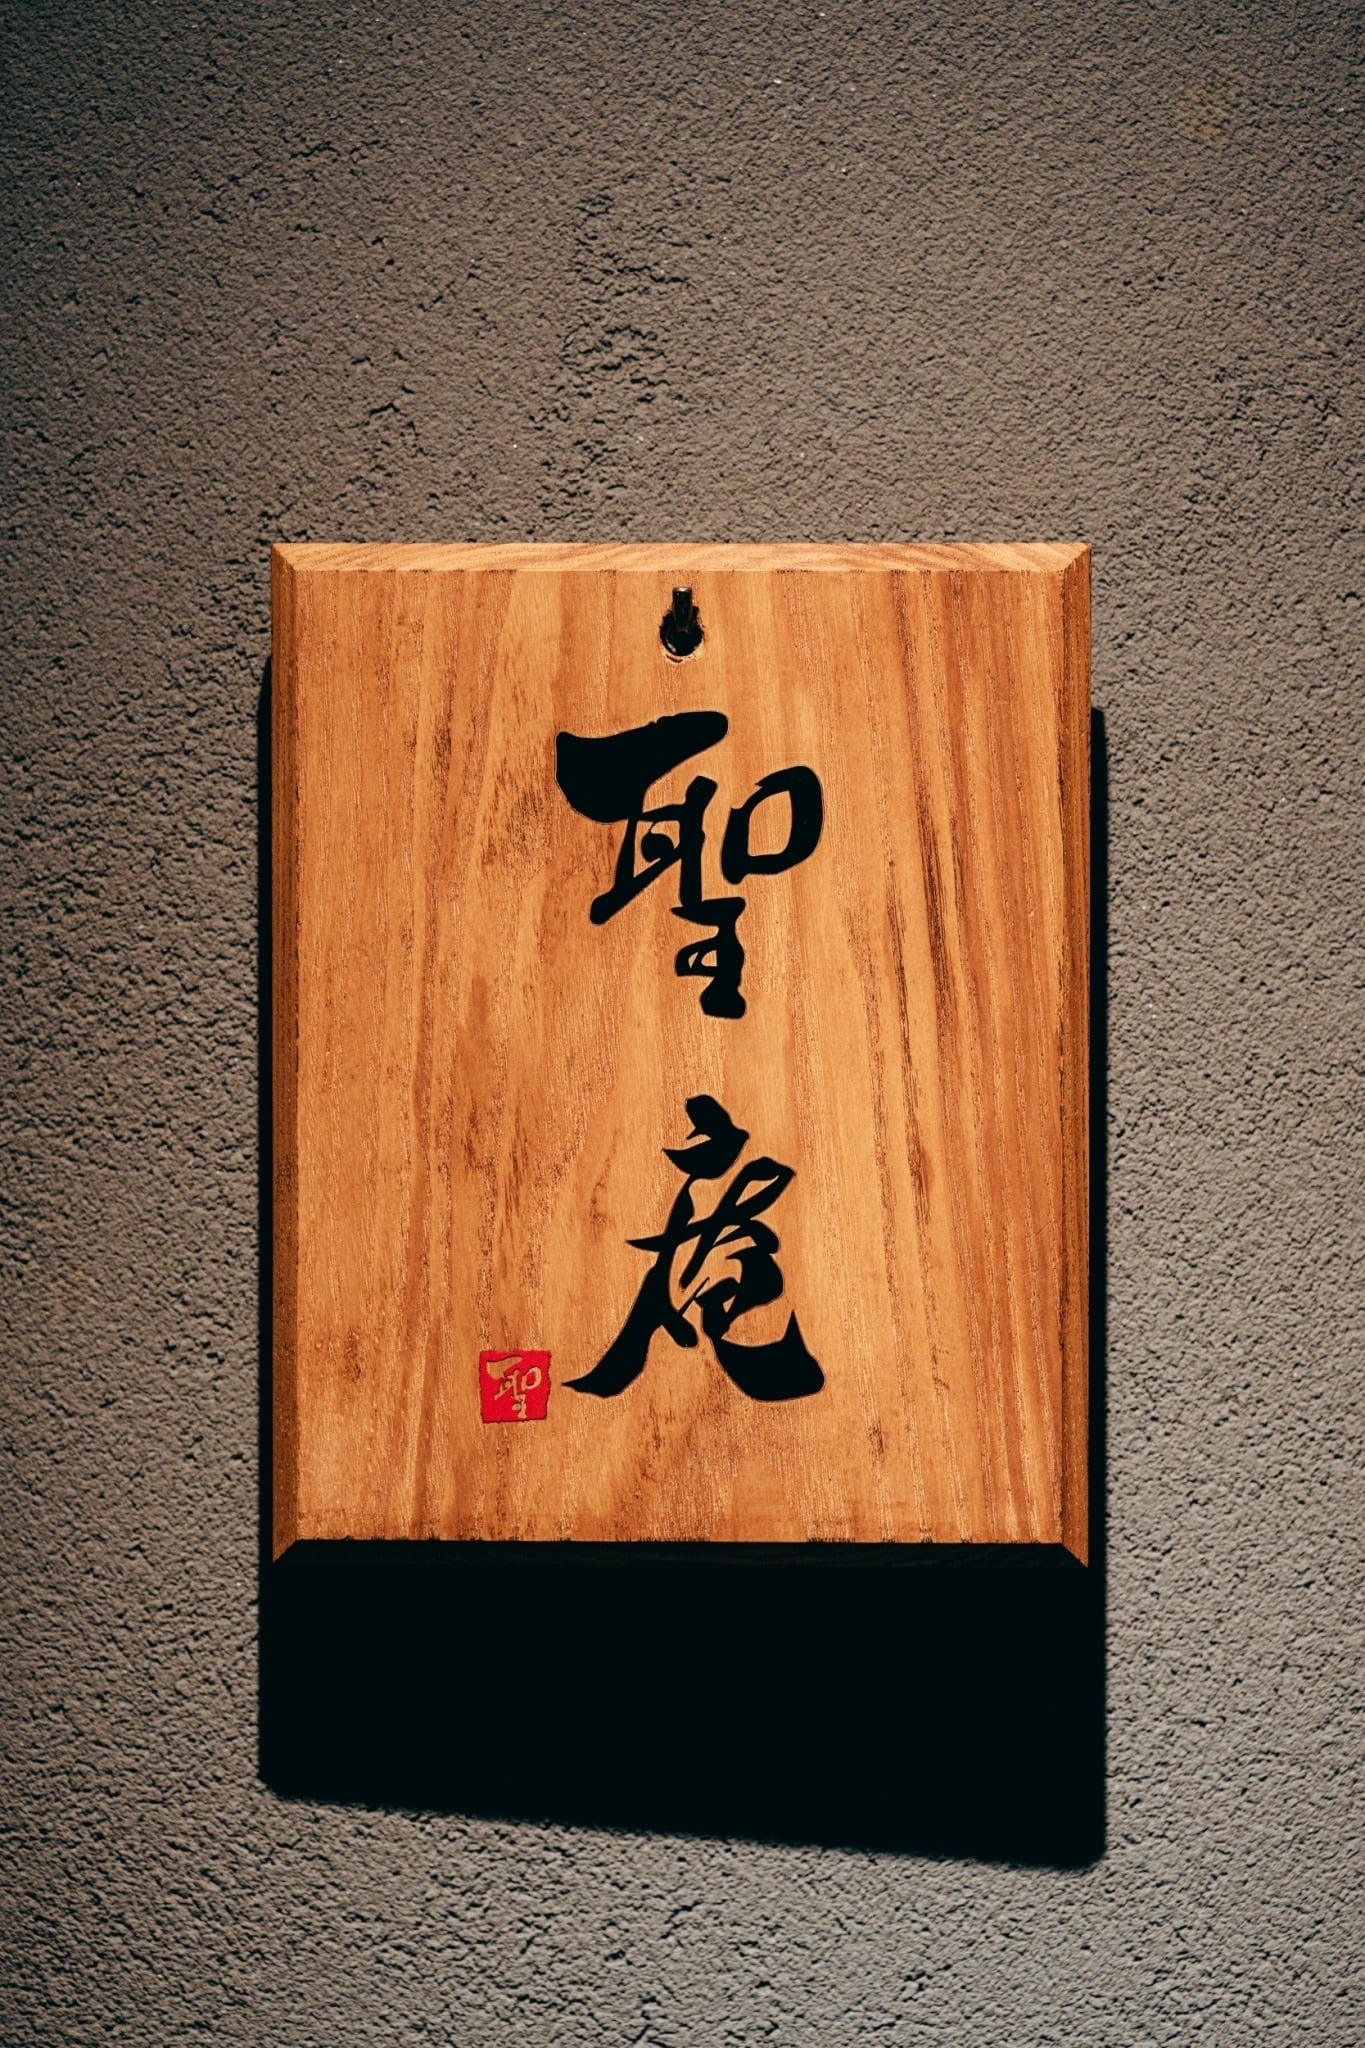 聖
庵
聖